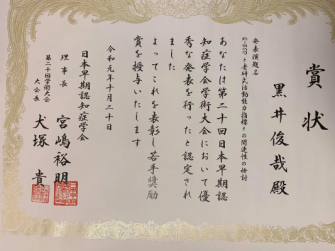 賞状
発表演題名
と老研式活動能力指標との関連性の検討
黒井俊哉殿
あなたは第二十回日本早期認
知症学会学術大会において優
秀な発表を行ったと認定され
ました
よってこれを表彰し若手奨励
賞を授与いたします
令和元年十月二十日
日本早期認知症学会
理事長 宮嶋裕明
第二十回学術大会
大会長 犬塚貴